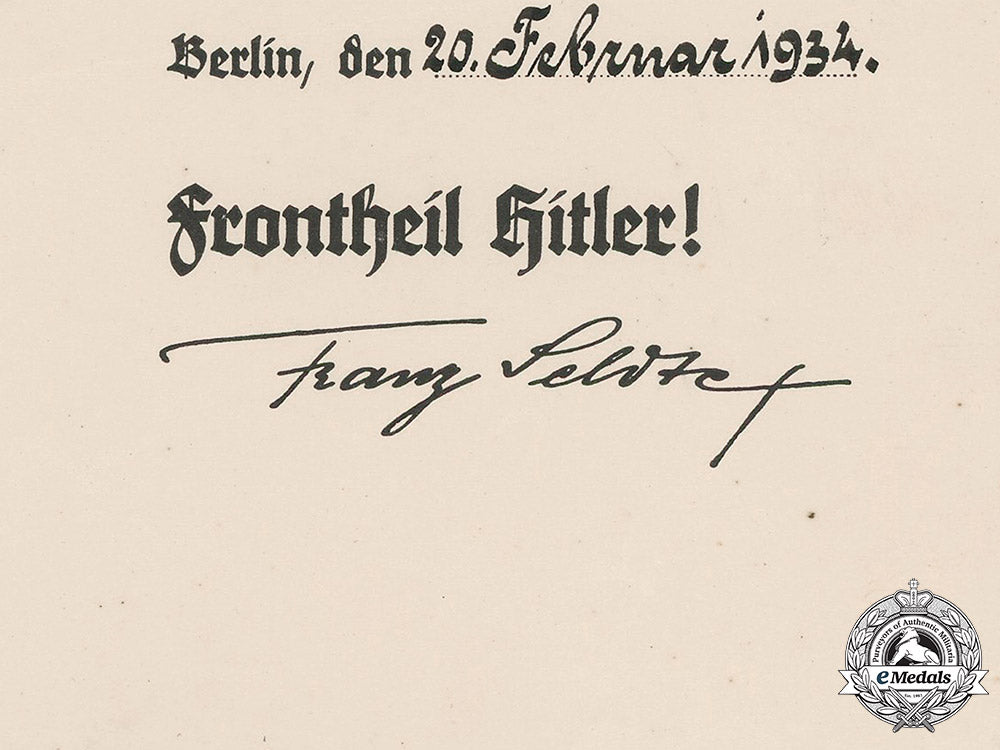 Berlin, den 20. Februar 1934.
Frontheil Hitler!
Franz Seldte
Purveyors of Authentic Militaria
eMedals